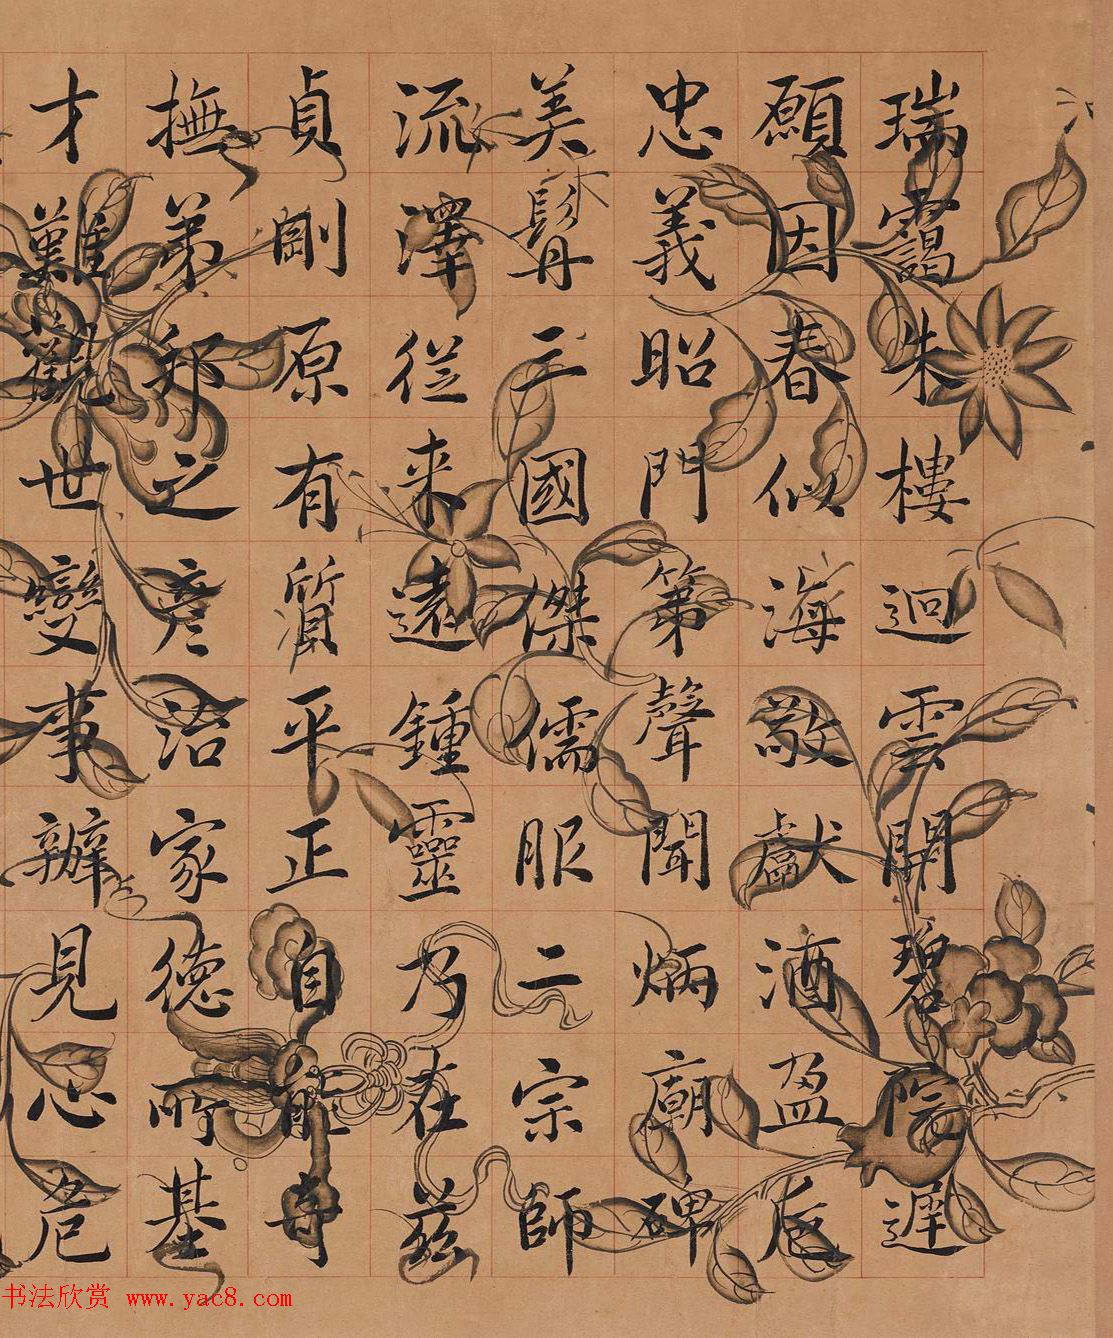 瑞靄朱樓迴雲開碧院遲
願因春似海敬獻酒盈卮
忠義昭門第聲聞炳廟碑
美髯三國傑儒服二宗師
流澤從来遠鍾靈乃在茲
貞剛原有質平正自能奇
撫弟邦之彦治家德所基
才難觀世變事辦見心危
书法欣赏 www.yac8.com